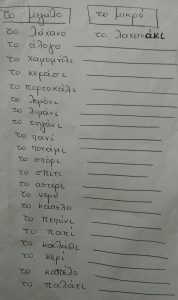 το μεγάλο το μικρό
το λάχανο το λαχανάκι
το άλογο
το χαμομήλι
το κεράσι
το πορτοκάλι
το λεμόνι
το λιμάνι
το τηγάνι
το πανί
το ποτάμι
το σπόρι
το σπίτι
το αστέρι
το νερό
το καπέλο
το πεπόνι
το παπί
το καλάθι
το κερί
το καπέλο
το παλάτι